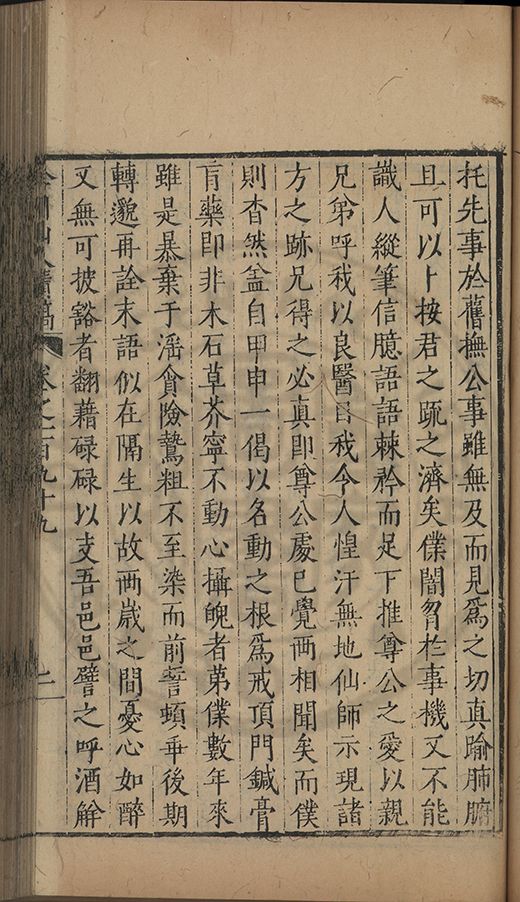 托先事於舊撫公事雖無及而見爲之切真踰肺腑
且可以卜按君之䟽之濟矣僕闇㫚扵事機又不能
識人縱筆信臆語語棘衿而足下推尊公之愛以親
兄弟呼我以良醫目我令人惶汗無地仙師示現諸
方之跡兄得之必真即尊公處已覺両相聞矣而僕
則杳然盖自甲申一偈以名動之根爲戒頂門鍼膏
肓藥即非木石草芥寧不動心攝魄者第僕數年來
雖是暴棄于滛貪險鷙粗不至染而前誓頓乖後期
轉邈再詮末語似在隔生以故両歲之間憂心如醉
又無可披豁者翻藉碌碌以支吾邑邑譬之呼酒解
卷之一百九十九 二